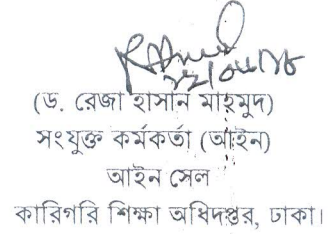 (ড. রেজা হাসান মাহমুদ)
সংযুক্ত কর্মকর্তা (আইন)
আইন সেল
কারিগরি শিক্ষা অধিদপ্তর, ঢাকা।